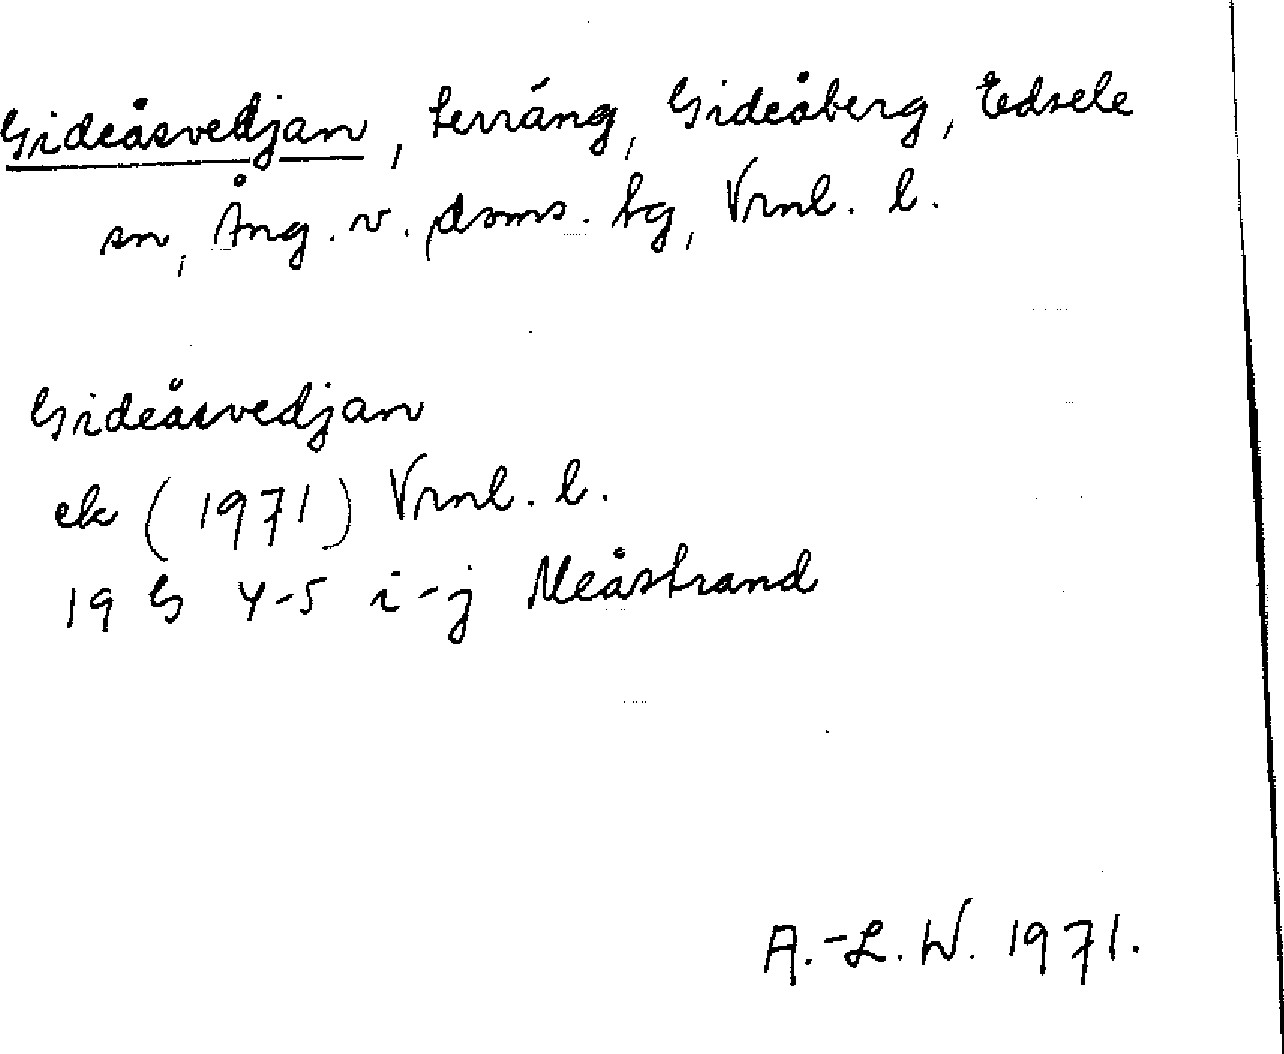 Gideåsvedjan, terräng, Gideåberg, Edsele
sn, Ång. v. doms. tg, Vrnl. l.
Gideåsvedjan
ek (1971) Vrnl. l.
19 G 4-5 i-j Meåstrand
A.-L. W. 1971.